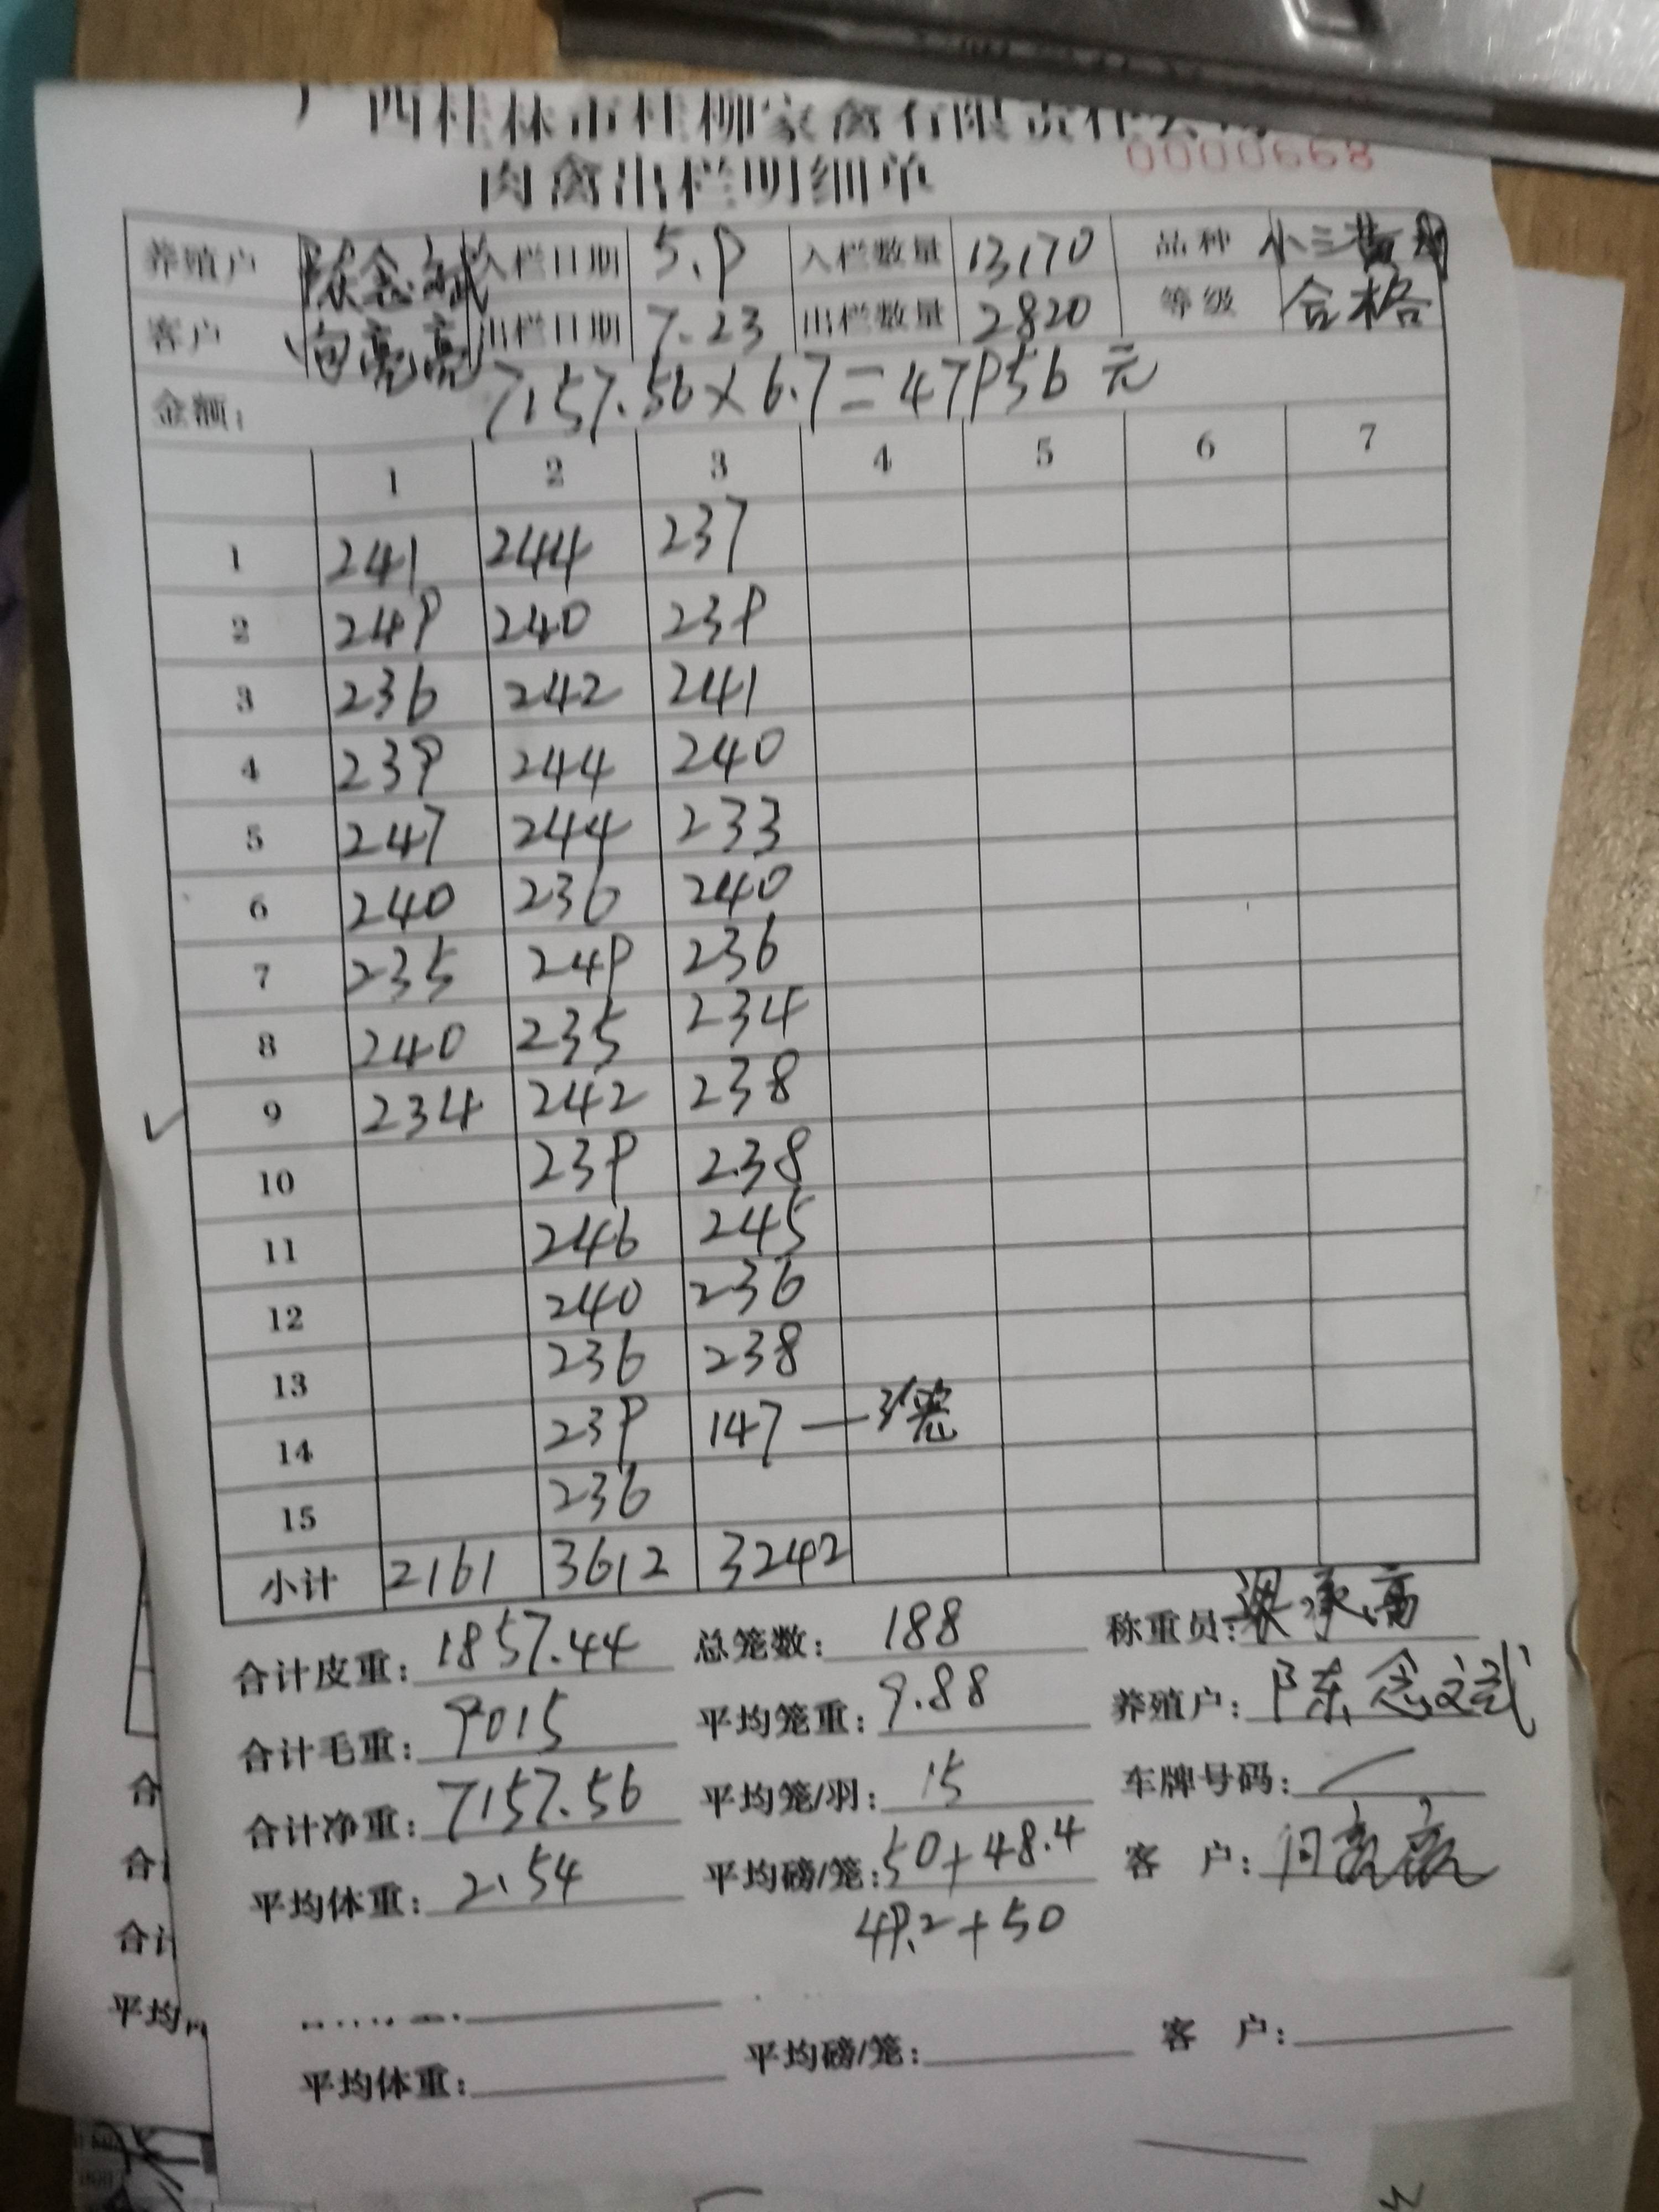 广西桂林市桂柳家禽有限责任公司
肉禽出栏明细单
0000668
养殖户 陈念斌 入栏日期 5.9 入栏数量 13170 品种 小三黄
客户 向亮亮 出栏日期 7.23 出栏数量 2820 等级 合格
金额: 7157.56×6.7=47956元
1 2 3 4 5 6 7
1 241 244 237
2 249 240 239
3 236 242 241
4 239 244 240
5 247 244 233
6 240 236 240
7 235 249 236
8 240 235 234
9 234 242 238
10 239 238
11 246 245
12 240 236
13 236 238
14 239 147—3笼
15 236
小计 2161 3612 3242
合计皮重: 1857.44 总笼数: 188 称重员: 梁承高
合计毛重: 9015 平均笼重: 9.88 养殖户: 陈念斌
合计净重: 7157.56 平均笼/羽: 15 车牌号码: /
平均体重: 2.54 平均磅/笼: 50+48.4 客 户: 向亮亮
49.2+50
平均体重: 平均磅/笼: 客 户:
合
合
合计
平均